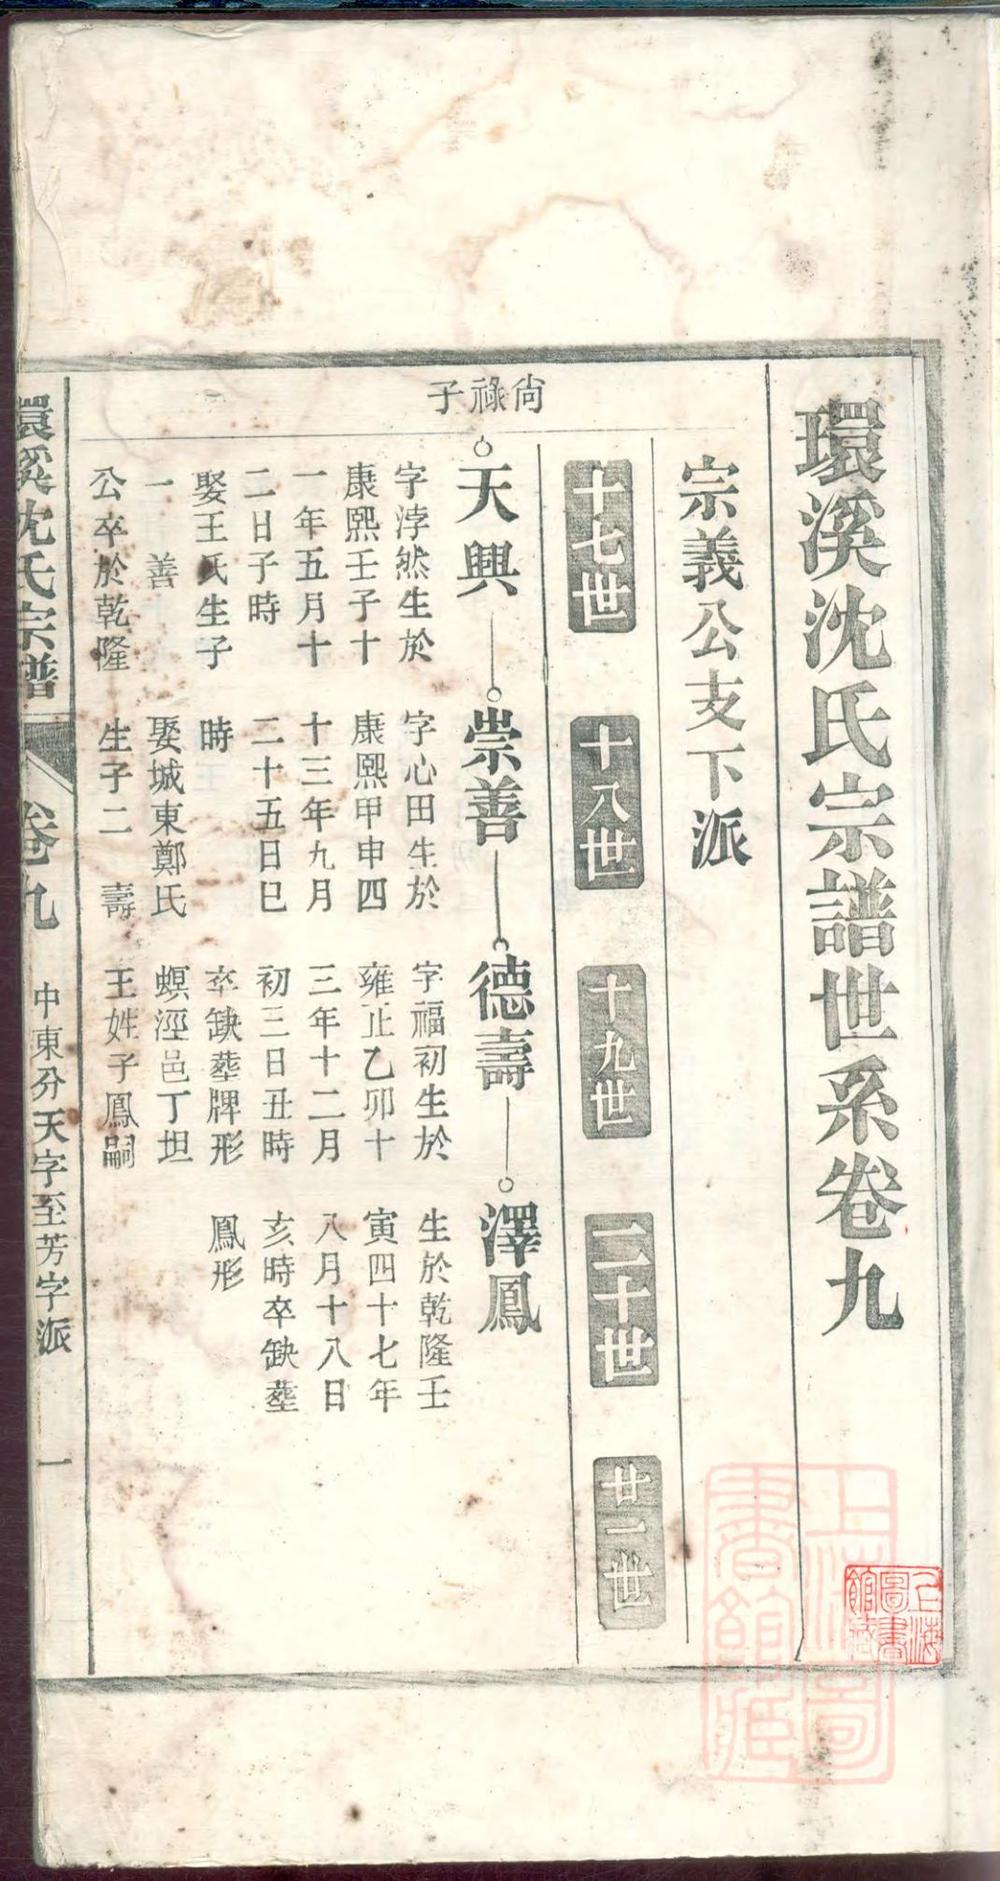 環溪沈氏宗譜世系卷九
宗義公支下派
十七世
十八世
十九世
二十世
廿一世
尙祿子
天興
字浡然生於
康熙壬子十
一年五月十
二日子時
娶王氏生子
一 善
公卒於乾隆
崇善
字心田生於
康熙甲申四
十三年九月
二十五日巳
時
娶城東鄭氏
生子二 壽
德壽
字福初生於
雍正乙卯十
三年十二月
初三日丑時
卒缺塟牌形
螟涇邑丁坦
王姓子鳳嗣
澤鳳
生於乾隆壬
寅四十七年
八月十八日
亥時卒缺塟
鳳形
環溪沈氏宗譜
卷九
中東分天字至芳字派
一
上海圖書館藏
上海圖書館藏